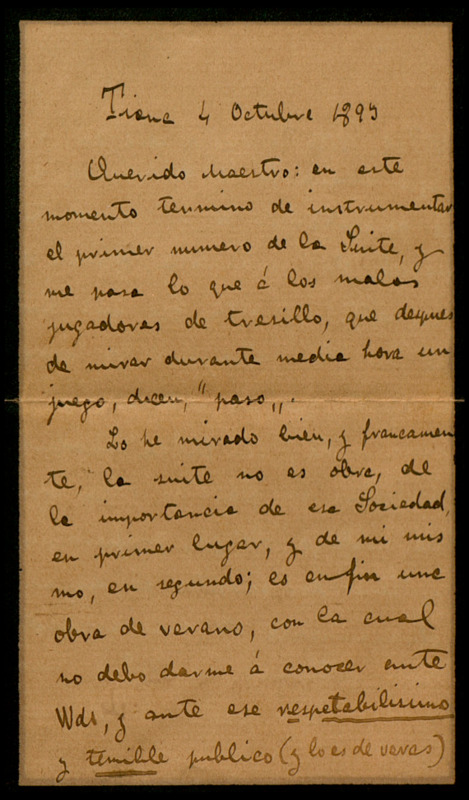 Tiana 4 Octubre 1893
Querido Maestro: en este
momento termino de instrumentar
el primer numero de la Suite, y
me pasa lo que á los malos
jugadores de tresillo, que despues
de mirar durante media hora un
juego, dicen, "paso„.
Lo he mirado bien, y francamen
te, la suite no es obra, de
la importancia de esa Sociedad,
en primer lugar, y de mi mis
mo, en segundo; es en fin una
obra de verano, con la cual
no debo darme á conocer ante
Vds, y ante ese respetabilisimo
y temible publico (y lo es de veras)